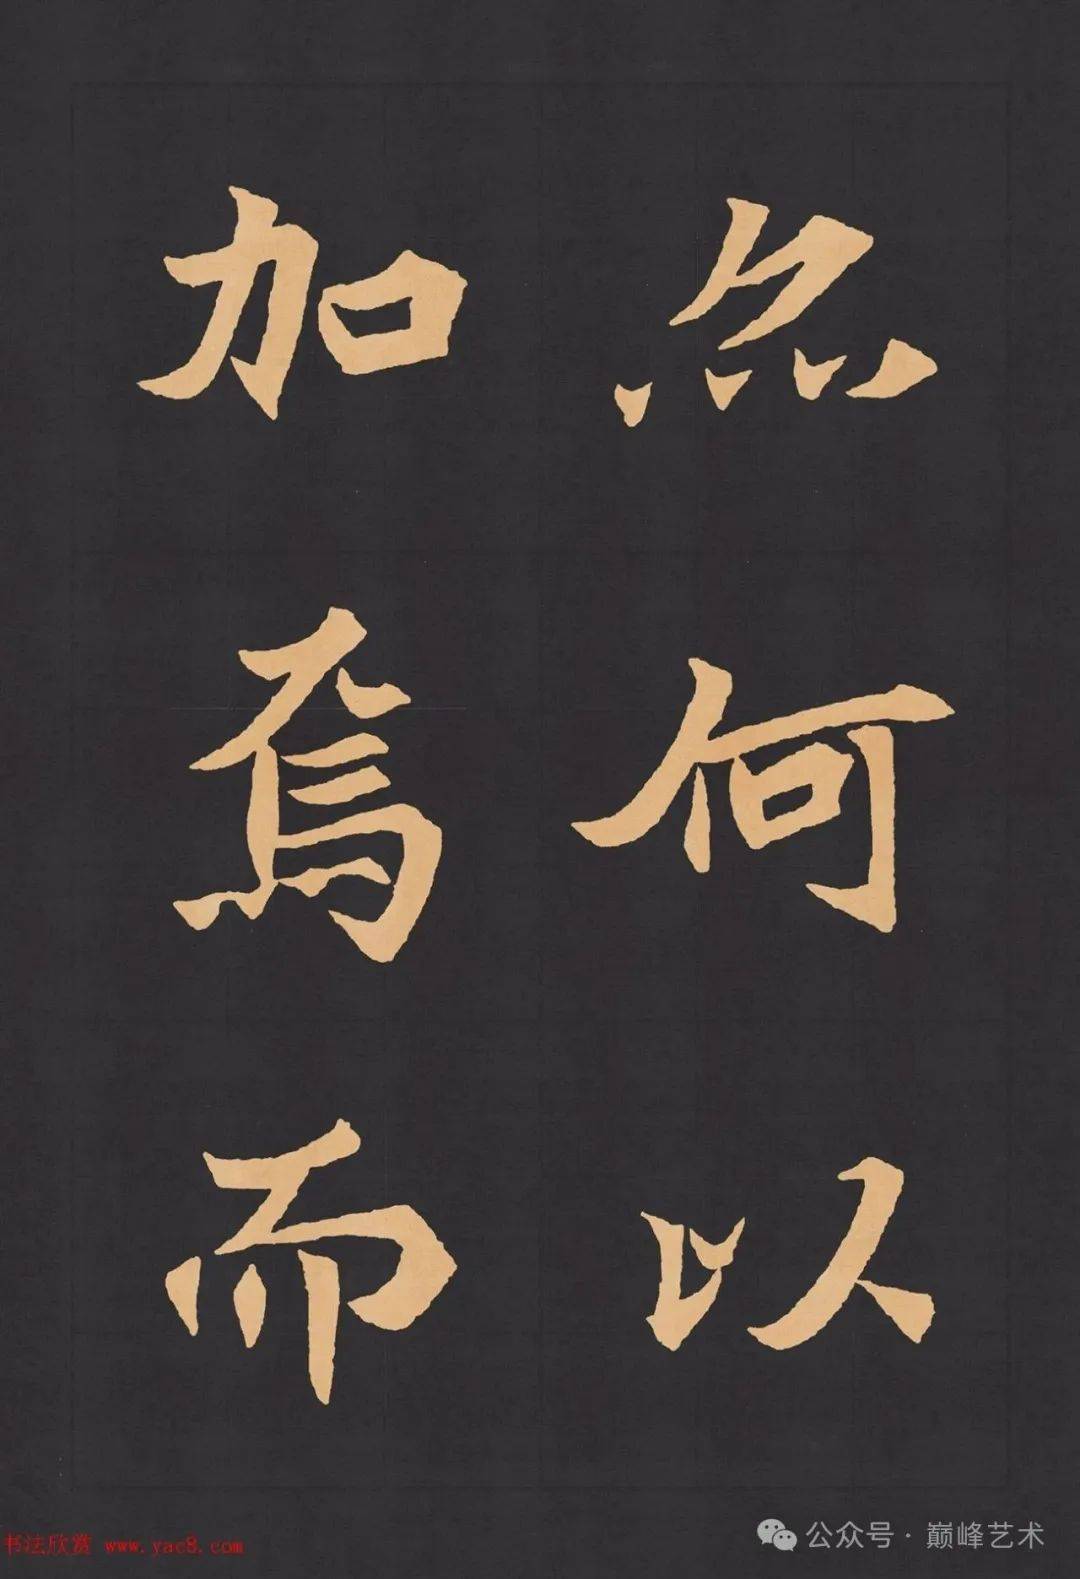 何以
加焉而
书法欣赏 www.yac8.com
公众号·巅峰艺术